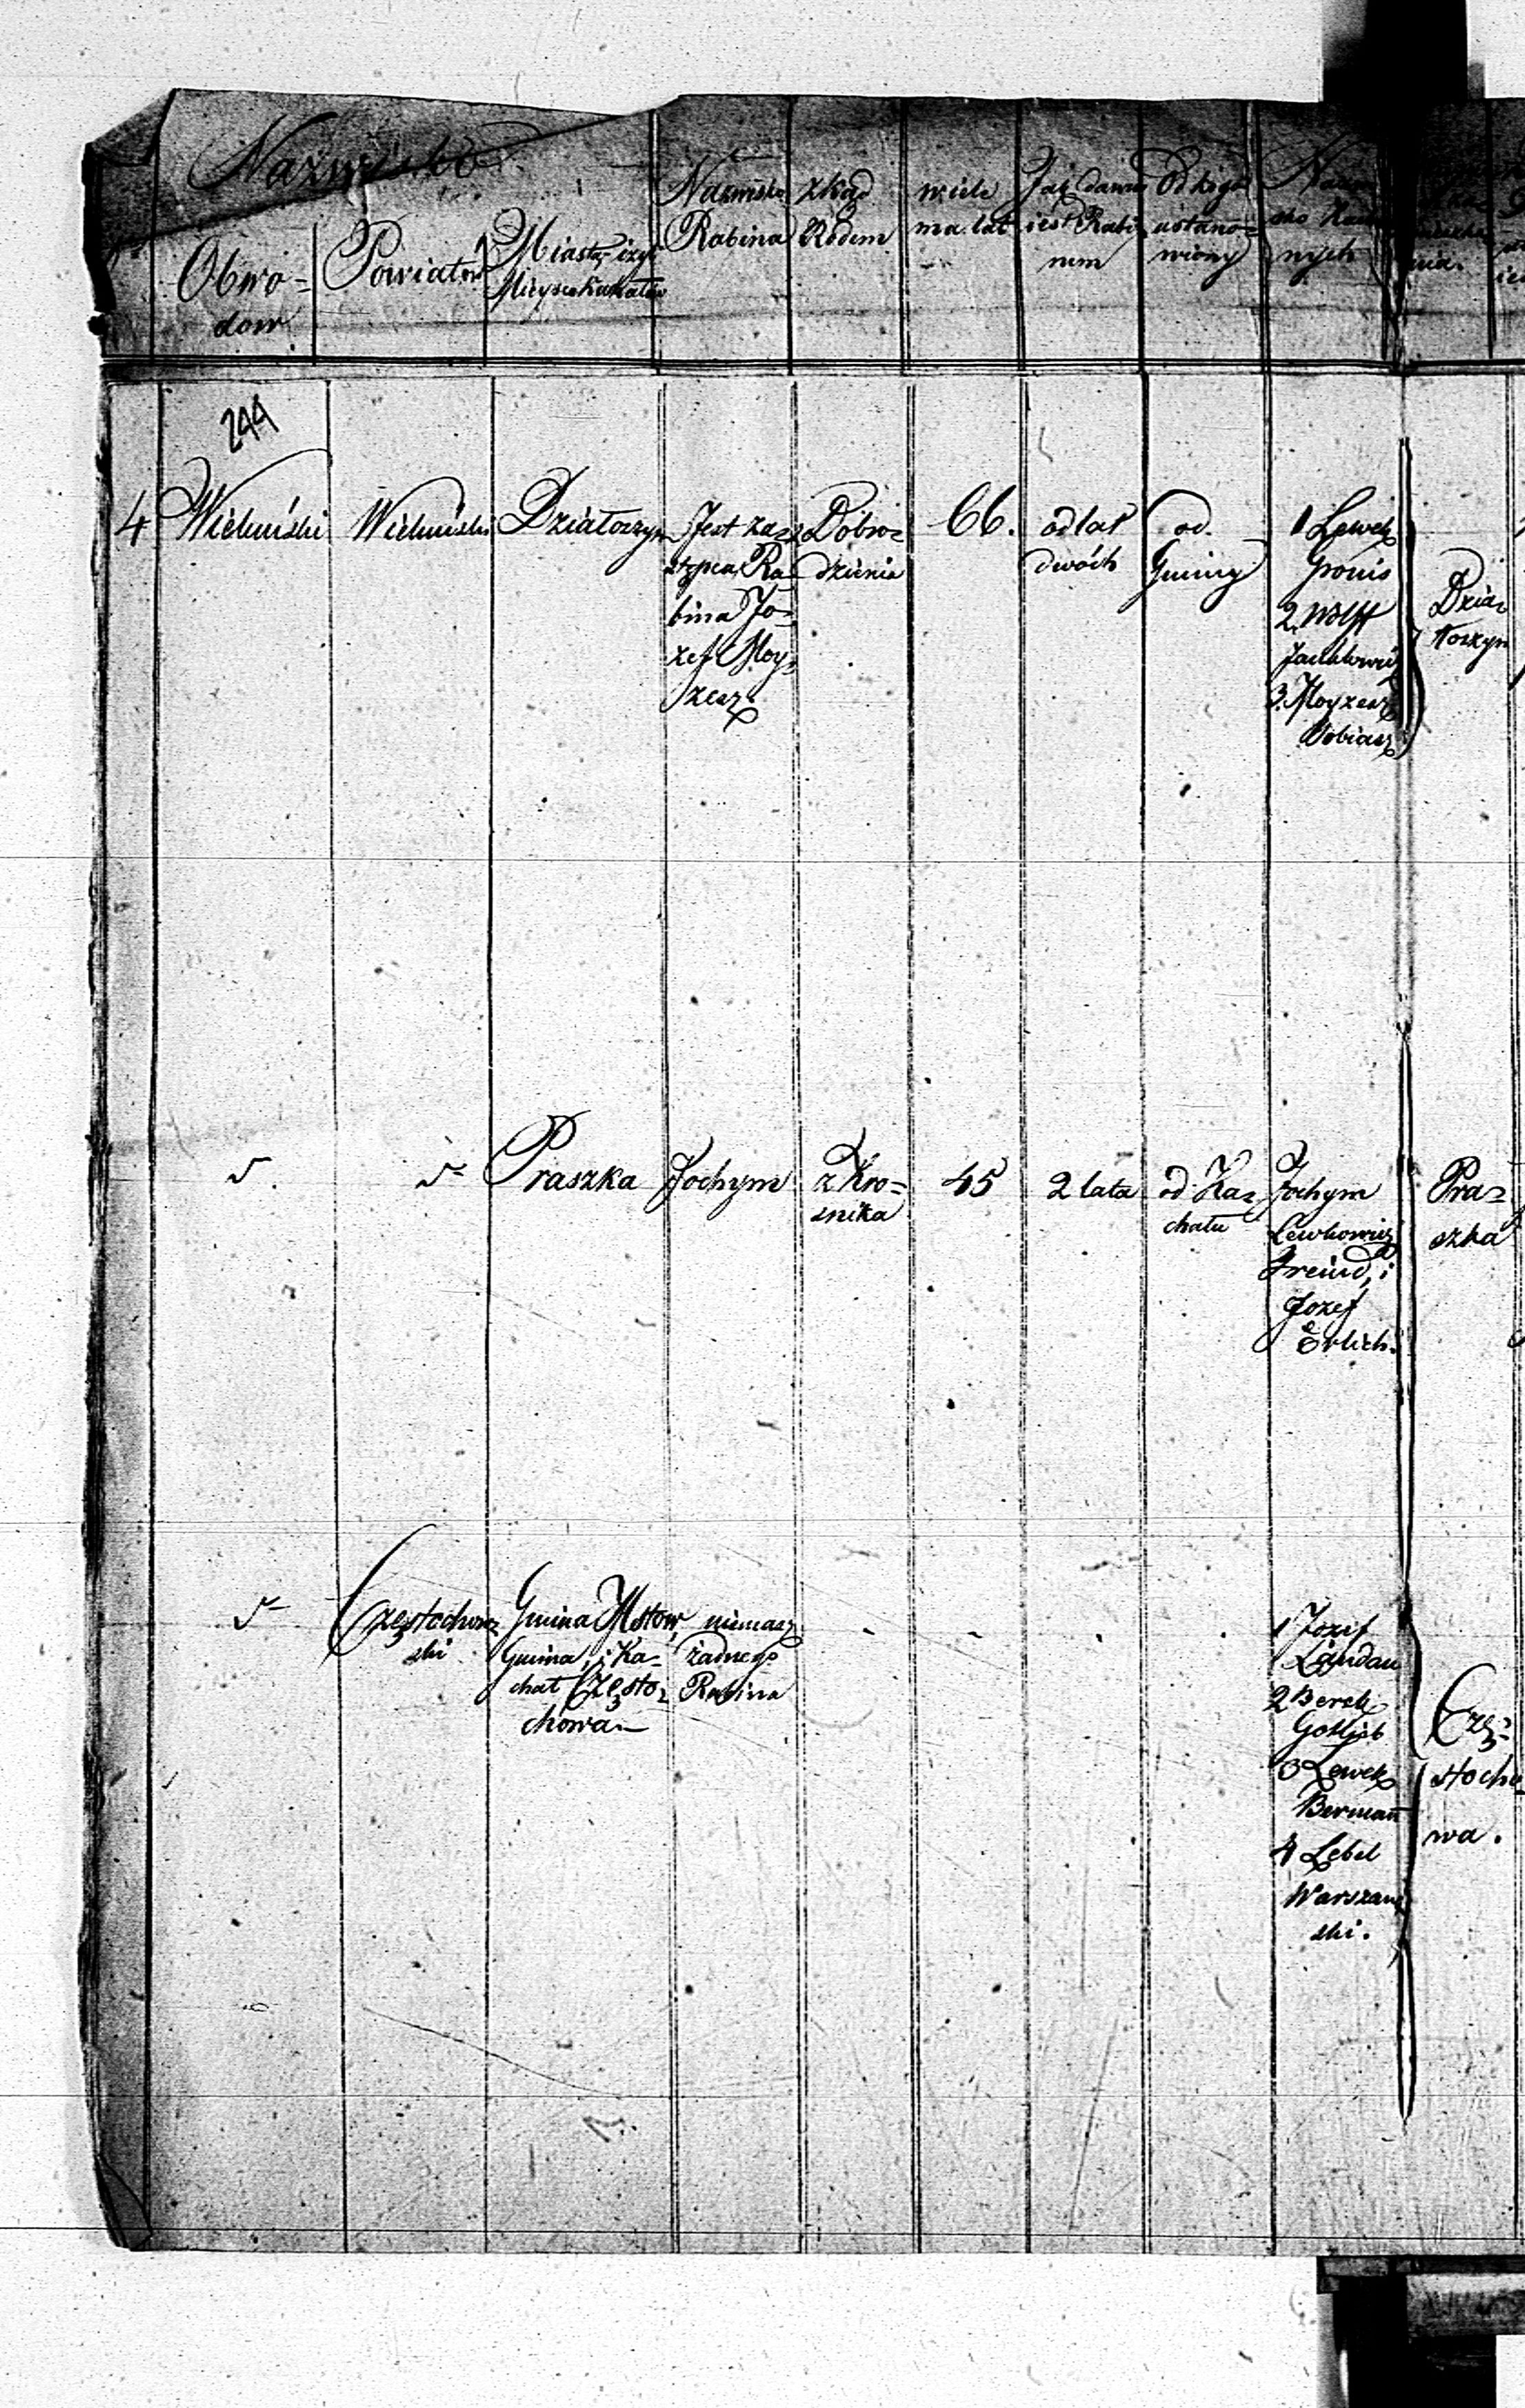 Nazwisko
Obwo=
dow
Powiatow
Miasta, czyli
Mieysca Kahałów
Nazwisko
Rabina
zkąd
Rodem
wiele
ma lat
Jak dawno
iest Rabi
nem
Od kogo
ustano=
wiony
sko
nych
nia.
244
4
Wieluński
Wieluński
Działoszyn
Jest za=
stępca Ra
bina Jo=
zef Moy=
zesz
Dobro=
dzienia
66.
od lat
dwóch
od
Gminy
1 Lewek
Gronis
2. Wolff
Jachlowicz
3. Moyzesz
Tobiasz
Dzia=
łoszyn
Praszka
Jochym
z Kro=
snika
45
2 lata
od Ka=
chału
Jochym
Lewkowicz
Freund, i
Jozef
Erlich.
Pra=
szka
Częstochow=
ski
Gmina Mstow,
Gmina, i Ka=
chał Często=
chowa
niemasz
żadnego
Rabina
1 Jozef
Landau
2 Berek
Gotlieb
3 Lewek
Berman
4 Lebel
Warszaw
ski.
Czę=
stocho
wa.